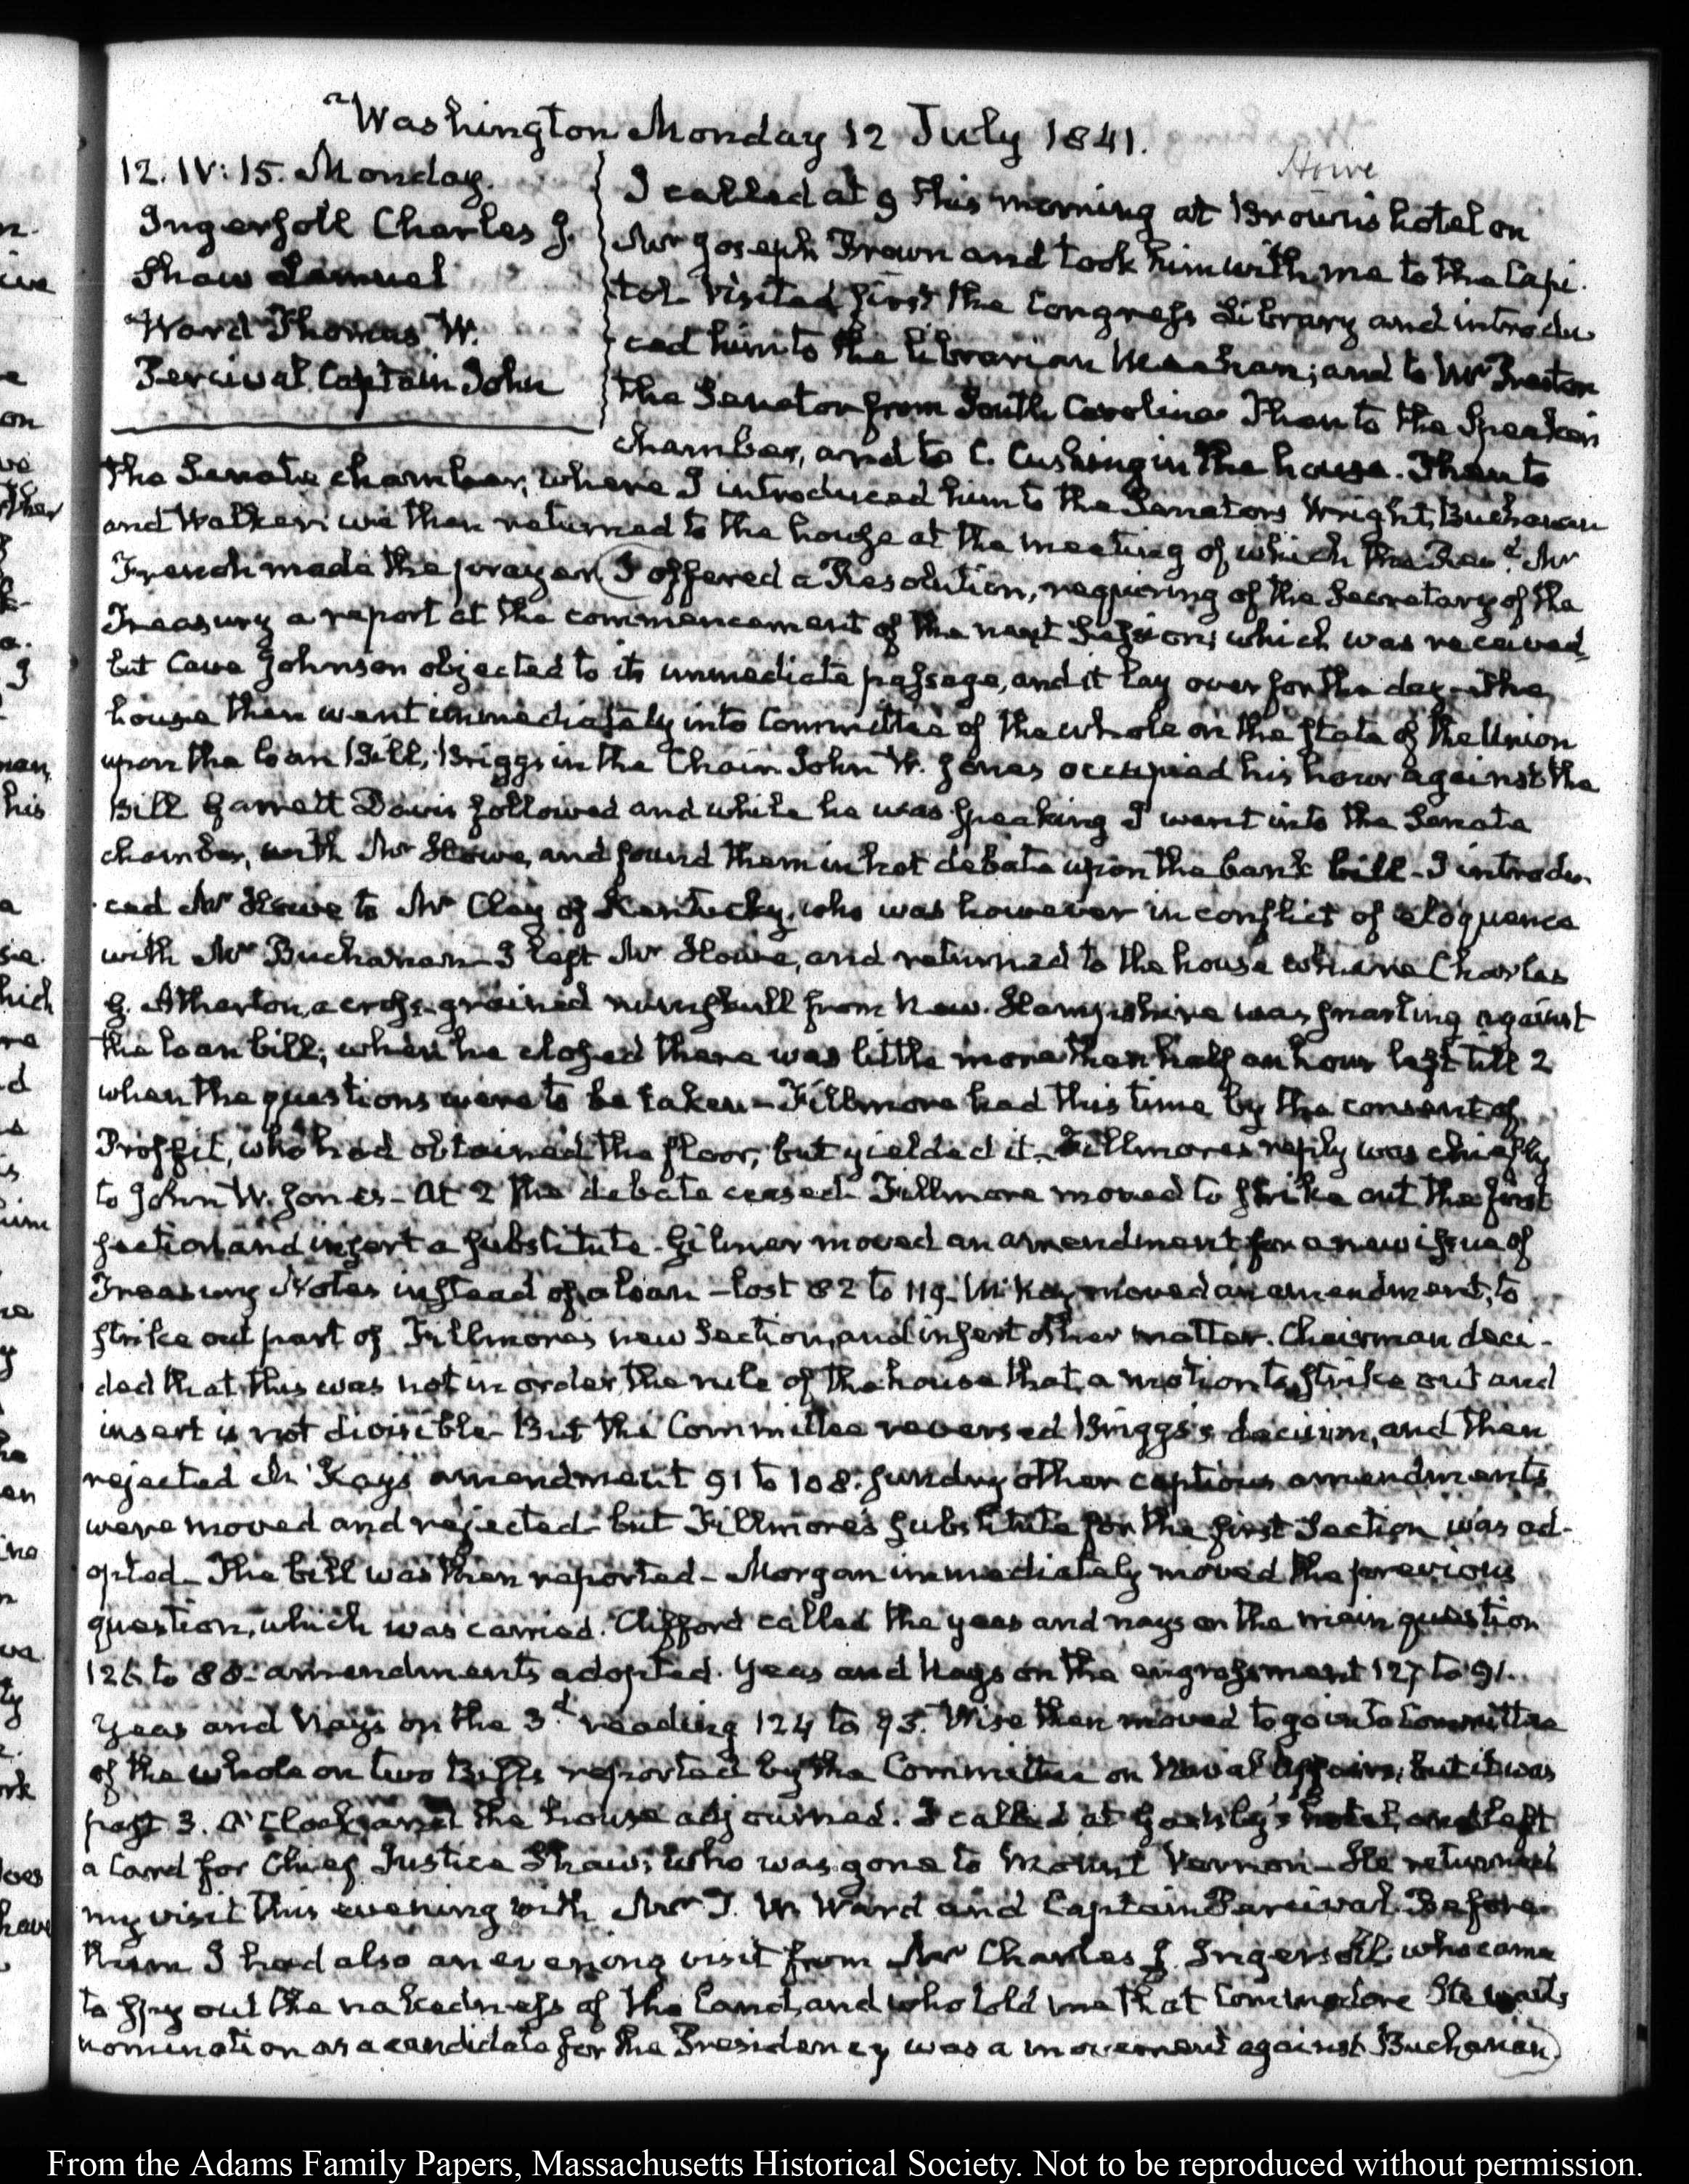 Washington Monday 12 July 1841.
Howe
12. IV:15. Monday.
Ingersoll Charles J.
Shaw Lemuel
Ward Thomas W.
Percival Captain John
I called at 9 this morning at Brown's hotel on
Mr Joseph Brown and took him with me to the Capi-
tol. Visited first the Congress Library and introdu-
ced him to the librarian Meehan; and to Mr Preston
the Senator from South Carolina. Then to the Speaker's
chamber, and to C. Cushing in the house. Then to
the Senate chamber, where I introduced him to the Senators Wright, Buchanan
and Walker; we then returned to the house at the meeting of which the Revd. Mr
French made the prayer. I offered a Resolution, requiring of the Secretary of the
Treasury a report at the commencement of the next Session; which was received,
but Cave Johnson objected to its immediate passage, and it lay over for the day. The
house then went immediately into Committee of the whole on the State of the Union
upon the loan Bill; Briggs in the Chair. John W. Jones occupied his hour against the
Bill Garrett Davis followed and while he was speaking I went into the Senate
chamber, with Mr Howe, and found them in hot debate upon the bank bill - I introdu-
ced Mr Howe to Mr Clay of Kentucky, who was however in conflict of eloquence
with Mr Buchanan - I left Mr Howe, and returned to the house where Charles
G. Atherton, a cross-grained numskull from New-Hampshire was snarling against
the loan bill; when he closed there was little more than half an hour left till 2
when the questions were to be taken - Fillmore had this time by the consent of
Proffit, who had obtained the floor, but yielded it. Fillmore's reply was chiefly
to John W. Jones - At 2 the debate ceased. Fillmore moved to strike out the first
section and insert a substitute. Gilmer moved an amendment for a new issue of
Treasury Notes instead of a loan - lost 82 to 119. McKay moved an amendment, to
strike out part of Fillmore's new Section, and insert other matter. Chairman deci-
ded that this was not in order, the rule of the house that a motion to strike out and
insert is not divisible - But the Committee reversed Briggs's decision, and then
rejected Mc Kay's amendment 91 to 108. Sundry other captious amendments
were moved and rejected - but Fillmore's substitute for the first Section was ad-
opted - The bill was then reported - Morgan immediately moved the previous
question, which was carried. Clifford called the yeas and nays on the main question
126 to 88 - amendments adopted. Yeas and Nays on the engrossment 127 to 91.
Yeas and Nays on the 3d. reading 124 to 93. Wise then moved to go into Committee
of the whole on two Bills reported by the Committee on Naval Affairs, but it was
past 3. O'Clock, and the house adjourned. I called at Gadsby's hotel, and left
a Card for Chief Justice Shaw, who was gone to Mount Vernon - He returned
my visit this evening with Mr T. W. Ward and Captain Percival. Before
them I had also an evening visit from Mr Charles J. Ingersoll, who came
to spy out the nakedness of the land, and who told me that Commodore Stewart's
nomination as a candidate for the Presidency was a movement against Buchanan.
From the Adams Family Papers, Massachusetts Historical Society. Not to be reproduced without permission.